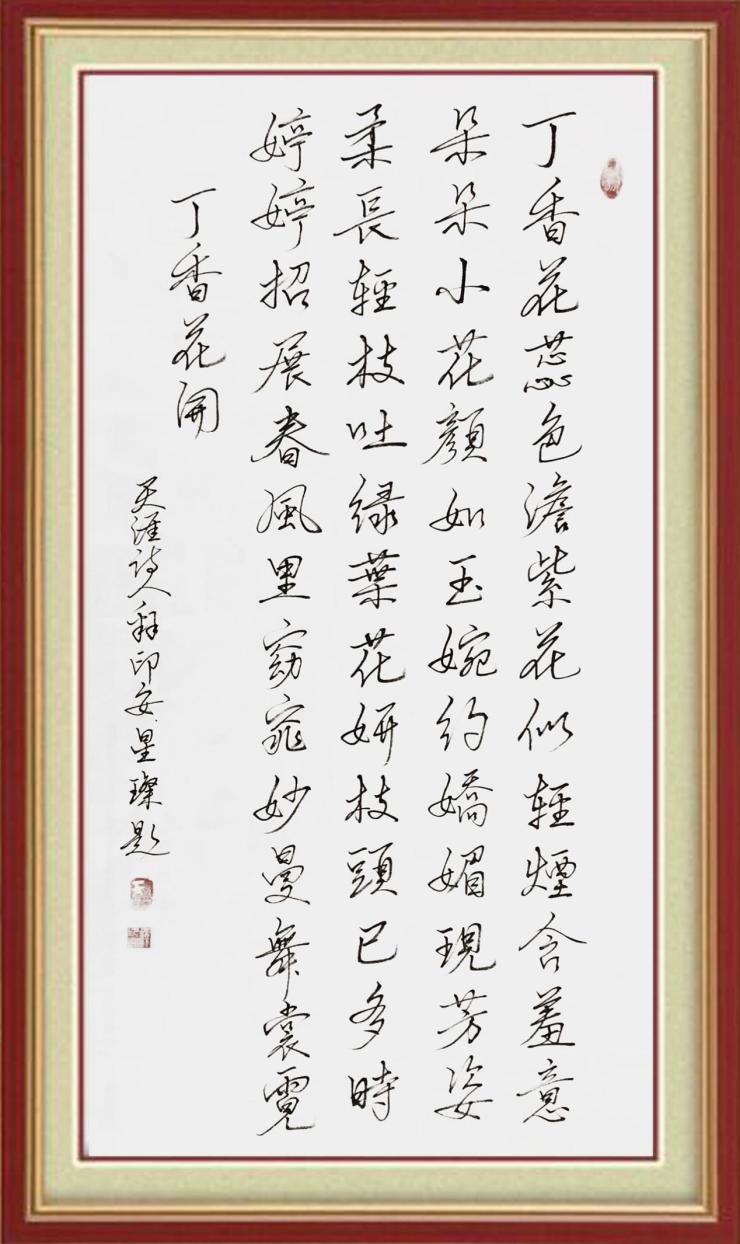 丁香花蕊色澹紫花似輕煙含羞意
朵朵小花顏如玉婉約嬌媚現芳姿
柔長輕枝吐绿葉花妍枝頭已多時
婷婷招展春風里窈窕妙曼舞裳霓
丁香花開
天涯詩人釋印安星璨題